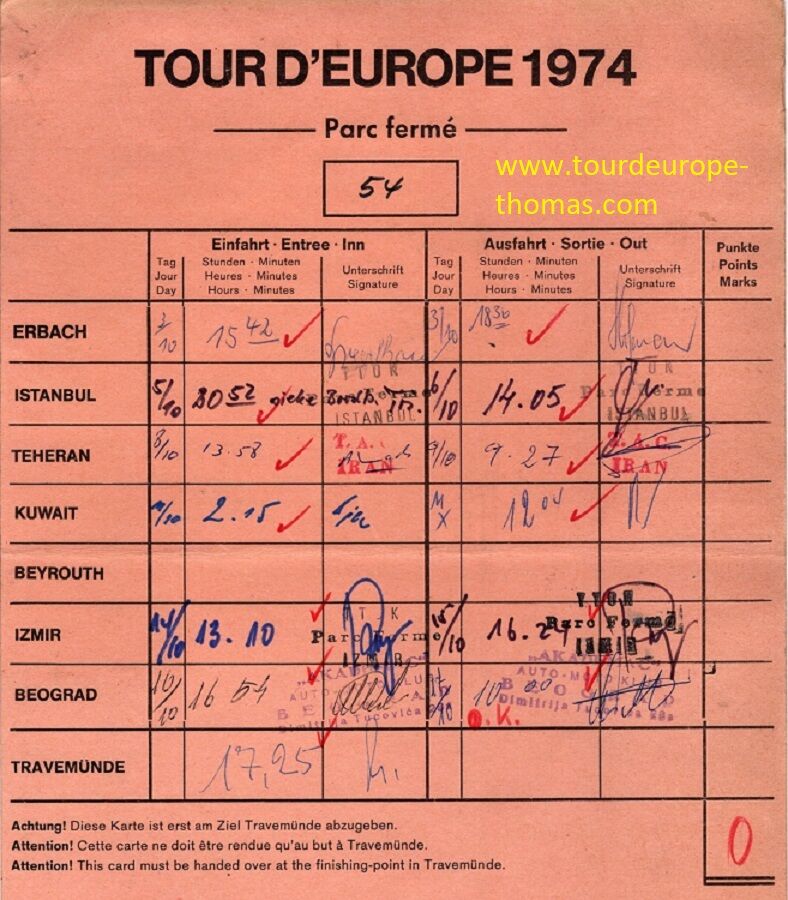 TOUR D'EUROPE 1974
Parc fermé
54
www.tourdeurope-
thomas.com
Einfahrt · Entree · Inn
Ausfahrt · Sortie · Out
Tag
Jour
Day
Stunden · Minuten
Heures · Minutes
Hours · Minutes
Unterschrift
Signature
Tag
Jour
Day
Stunden · Minuten
Heures · Minutes
Hours · Minutes
Unterschrift
Signature
Punkte
Points
Marks
ERBACH 3/10 15 42 3/10 18 30
ISTANBUL 5/10 20 52 6/10 14.05
Parc Ferme
ISTANBUL
Parc Ferme
ISTANBUL
TEHERAN 8/10 13.58 T.A.C. IRAN 9/10 9.27 T.A.C. IRAN
KUWAIT 2.15 12 04
BEYROUTH
IZMIR 14/10 13.10 Parc Ferme IZMIR 15/10 16.24 Parc Fermé IZMIR
BEOGRAD 16/10 16 54 10 00
AUTO-MOTO KLUB
Dimitrija Tucovića
O.K.
TRAVEMÜNDE 17,25
Achtung! Diese Karte ist erst am Ziel Travemünde abzugeben.
Attention! Cette carte ne doit être rendue qu'au but à Travemünde.
Attention! This card must be handed over at the finishing-point in Travemünde.
0